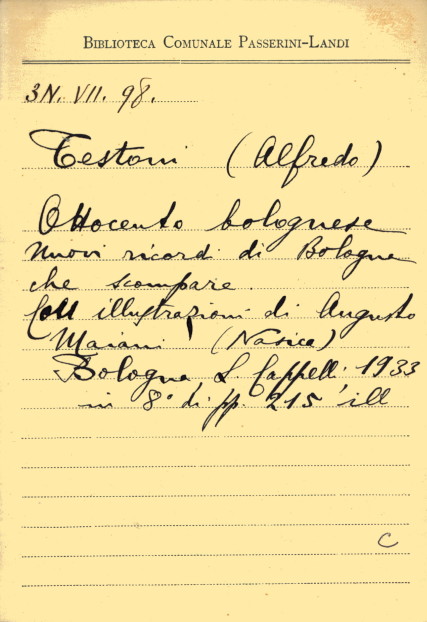 BIBLIOTECA COMUNALE PASSERINI-LANDI
3N. VII. 98.
Testoni (Alfredo)
Ottocento bolognese
Nuovi ricordi di Bologna
che scompare.
Coll illustrazioni di Augusto
Maiani (Nasica)
Bologna, L. Cappelli. 1933
in 8° di pp. 215 ill
C